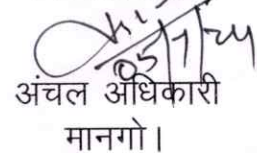 05/7/24
अंचल अधिकारी
मानगो।